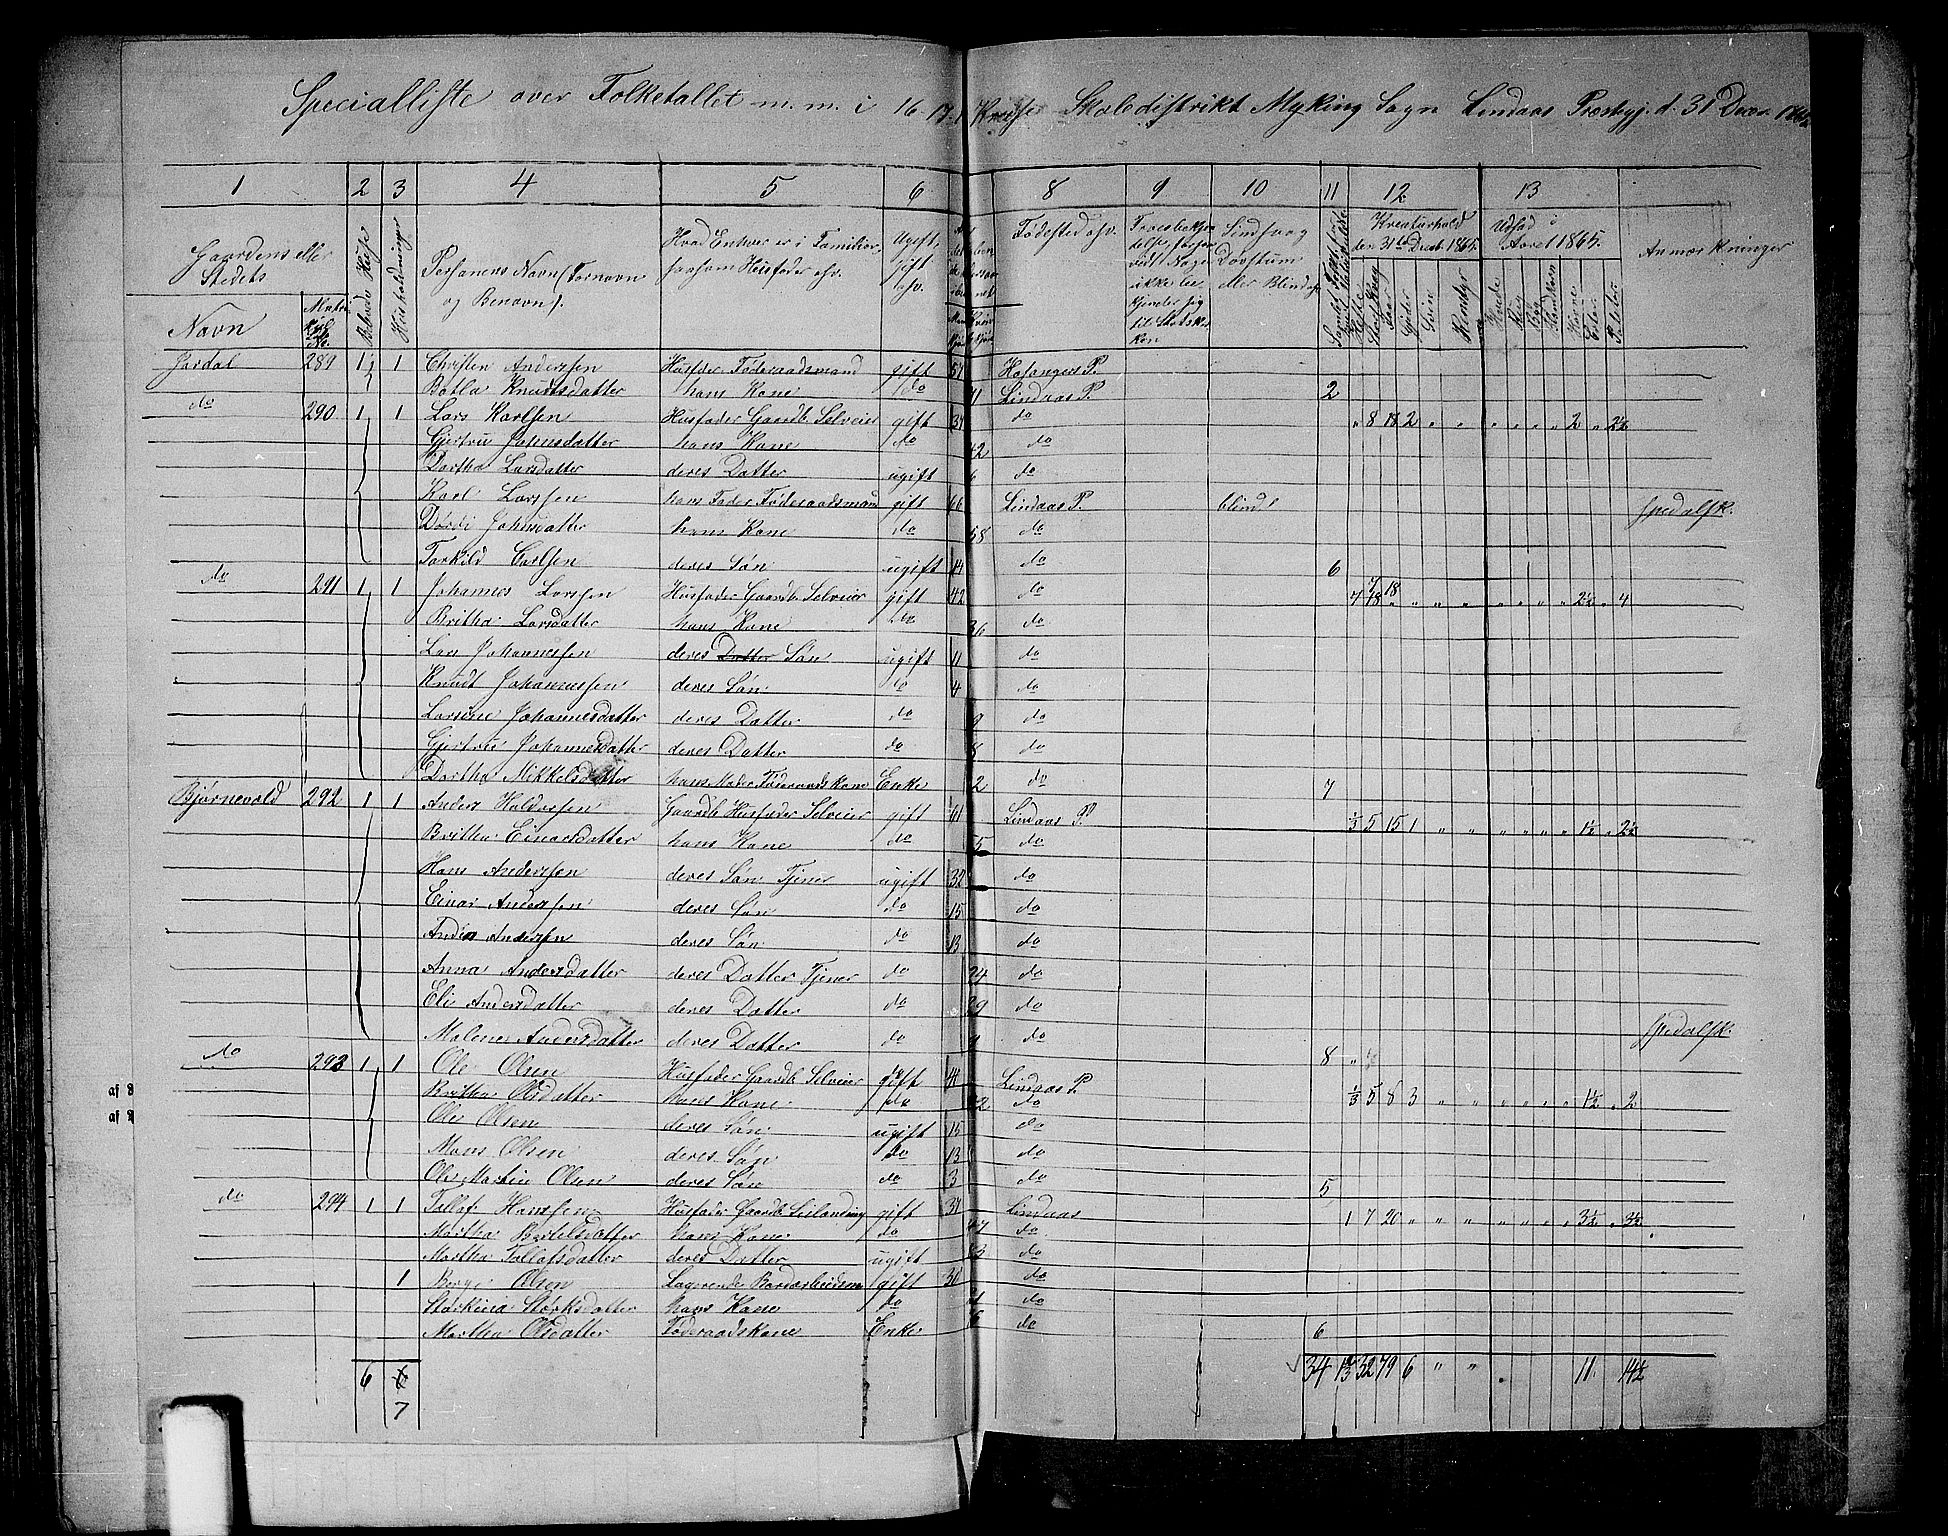 Specialliste over Folketallet m. m. i 16 17 Kredse Skoledistrikt Myking Sogn Lindaas Præstgj. d. 31 Decbr 1865
1 2 3 4 5 6 8 9 10 11 12 13
Gaardens eller Stedets
Navn
Beboede Huse
Husholdninger
Personens Navn (Fornavn og Benavn).
Hvad Enhver er i Familien, saasom Husfader osv.
Ugift, gift osv.
Fødested osv.
Sindssvag Døvstum eller Blind
Kreaturhold den 31te Decbr 1865.
Heste Stort Kvæg Faar Gjeder Sviin Rensdyr
Udsæd i Aaret 1865.
Hvede Rug Byg Blandkorn Havre Erter Poteter
Anmærkninger
Jordal 289 1 1 Christen Anderssen Husfader Føderaadsmand gift 57 Hosangers P.
Botla Knudsdatter hans Kone do 71 Lindaas P. 2
do 290 1 1 Lars Karlsen Husfader Gaardb. Selveier gift 37 do " 8 18 2 " " " " " " 2 " 2½
Gjertru Johnsdatter hans Kone do 42 do
Dortha Larsdatter deres Datter ugift 6 do
Karl Larssen hans Fader Føderaadsmand gift 66 Lindaas P. blind spedalsk.
Dordi Johnsdatter hans Kone do 58 do
Torkild Carlsen deres Søn ugift 14 do 6
do 291 1 1 Johannes Larssen Husfader Gaardb. Selveier gift 42 do 18 " " " " " " " 2½ " 4
Britha Larsdatter hans Kone do 36 do
Lars Johannessen deres Datter Søn ugift 11 do
Knudt Johannessen deres Søn do 4 do
Larsine Johannesdatter deres Datter do 9 do
Gjertrue Johannesdatter deres Datter do 8 do
Dortha Mikkelsdatter hans Moder Føderaadskone Enke 2 do 7
Bjørnevold 292 1 1 Anders Haldorsen Gaardb. Husfader Selveier gift 61 Lindaas P. ⅓ 5 15 1 " " " " " " 1½ " 2½
Britha Einarsdatter hans Kone do 5 do
Hans Anderssen deres Søn Tjener ugift 32 do
Einar Anderssen deres Søn do 15 do
Anders Anderssen deres Søn do 13 do
Anna Andersdatter deres Datter Tjener do 24 do
Eli Andersdatter deres Datter do 29 do
Malene Andersdatter deres Datter do do spedalsk. 8
do 293 1 1 Ole Olsen Husfader Gaardb. Selveier gift 44 Lindaas P. ⅓ 5 8 3 " " " " " " 1½ " 2
Britha Olsdatter hans Kone do 42 do
Ole Olsen deres Søn ugift 15 do
Mons Olsen deres Søn do 13 do
Ole Martin Olsen deres Søn do 3 do 5
do 294 1 1 Tollef Hanssen Husfader Gaardb. Leilending gift 37 Lindaas 1 7 20 " " " " " " " 3½ " 3½
Martha Bertelsdatter hans Kone do 47 do
Martha Tollefsdatter deres Datter ugift 3 do
1 Berge Olsen gift 36 do
Storkina Størksdatter hans Kone do do
Martha Olsdatter Føderaadskone Enke 6 do 6
6 7 34 32 79 6 " " 11 14½